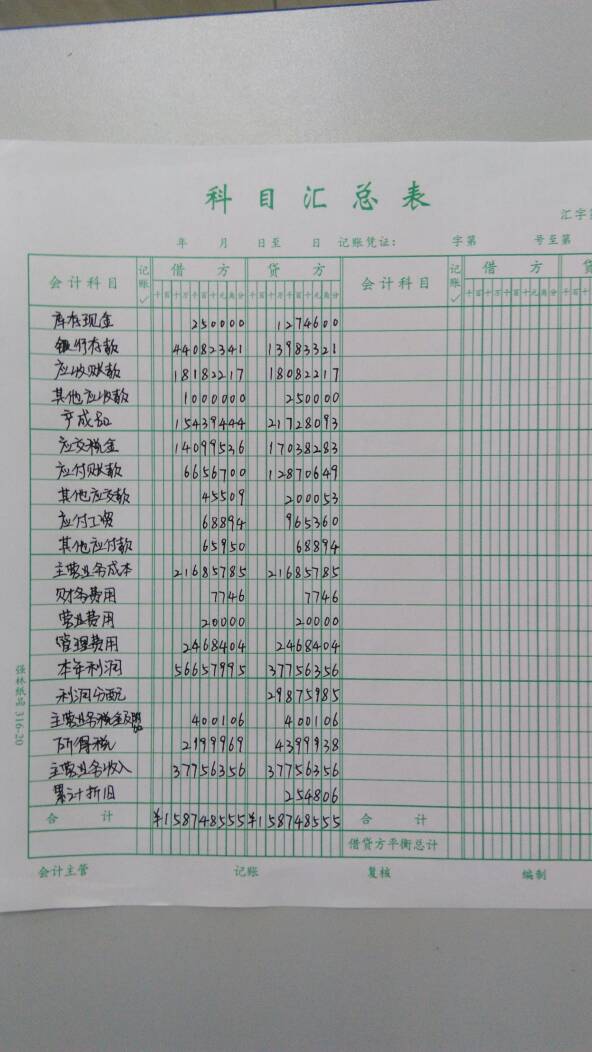 科目汇总表
汇字第
年 月 日至 日 记账凭证: 字第 号至第
会计科目 记账✓ 借方 贷方 会计科目 记账✓ 借方 贷
千百十万千百十元角分 千百十万千百十元角分 千百十万千百十元角分 千百十
库存现金 250000 1274600
银行存款 44082341 13983321
应收账款 18182217 18082217
其他应收款 1000000 250000
产成品 15439444 21728093
应交税金 14099536 17038283
应付账款 6656700 12870649
其他应交款 45509 200053
应付工资 68894 965360
其他应付款 65950 68894
主营业务成本 21685785 21685785
财务费用 7746 7746
营业费用 20000 20000
管理费用 2468404 2468404
本年利润 56657995 37756356
利润分配 29875985
主营业务税金及附加 400106 400106
所得税 2199969 4399938
主营业务收入 37756356 37756356
累计折旧 254806
合计 ¥158748555 ¥158748555 合计
借贷方平衡总计
会计主管 记账 复核 编制
强林纸品 316-20